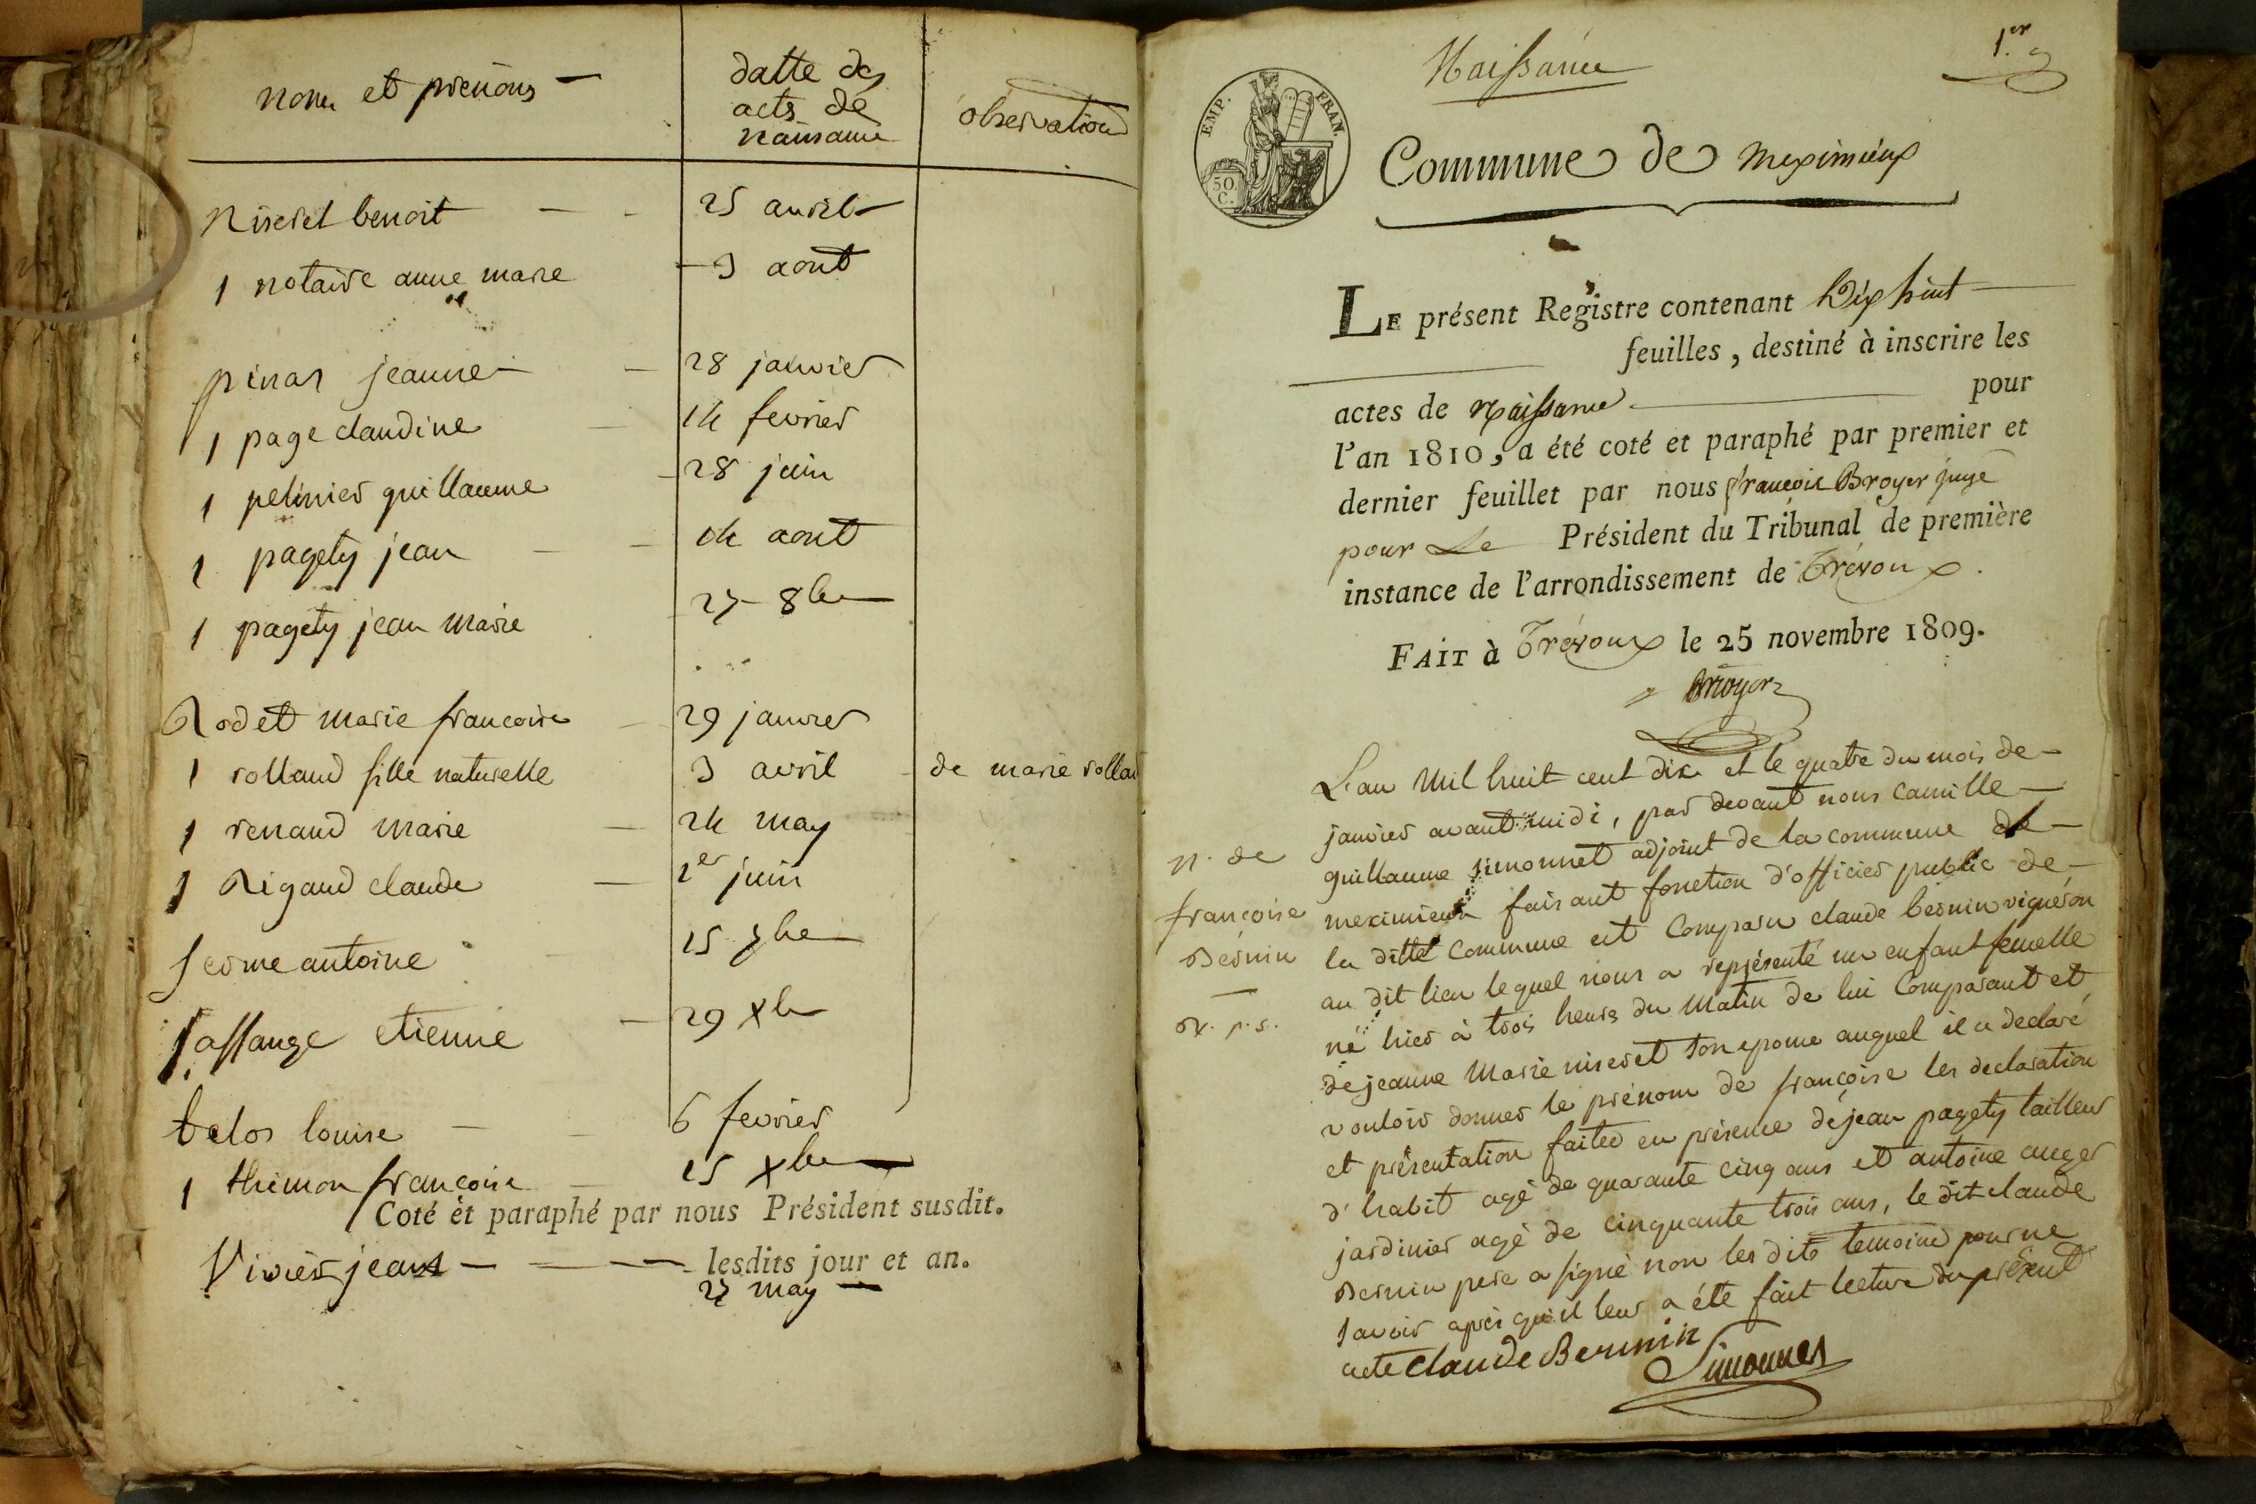 nom et prenoms
datte des
acts de
naissance
observation
niseret benoit 25 avril
1 notaire anne marie 3 aout
pinar jeanne 28 janvier
1 page claudine 14 fevrier
1 pelinier guillaume 28 juin
1 pagety jean 14 aout
1 pagety jean marie 27 8bre
Rodet marie francoise 29 janvier
1 rolland fille naturelle 3 avril de marie rolland
1 renaud marie 24 may
1 Rigaud claude 1er juin
serme antoine 15 7bre
sassange etienne 29 Xbre
belos louise 6 fevrier
1 thimon francoise 25 Xbre
Coté et paraphé par nous Président susdit.
Vivier jean lesdits jour et an.
27 may
Naissance
1.er
EMP. FRAN.
50.
C.
Commune de meximieux
LE présent Registre contenant Dix huit
feuilles, destiné à inscrire les
actes de Naissance pour
l'an 1810, a été coté et paraphé par premier et
dernier feuillet par nous françois Broyer juge
pour Le Président du Tribunal de première
instance de l'arrondissement de Trévoux.
FAIT à Trévoux le 25 novembre 1809.
Broyer
L'an Mil huit cent dix et le quatre du mois de
janvier avant midi, par devant nous camille
guillaume simonnet adjoint de la commune de
meximieux faisant fonction d'officier public de
la ditte Commune est Comparu claude bernin vigneron
au dit lieu lequel nous a représenté un enfant femelle
né hier à trois heurs du Matin de lui Comparant et
de jeanne Marie niseret son epouse auquel il a declaré
vouloir donner le prénom de françoise les declaration
et présentation faites en présence de jean pagety tailleur
d'habit agé de quarante cinq ans et antoine auger
jardinier agé de cinquante trois ans, le dit claude
Bernin pere a signé non les dits temoins pour ne
savoir après qu'il leur a été fait lecture du présent
acte Claude Bernnin
Simonnet
N. de
françoise
Bernin